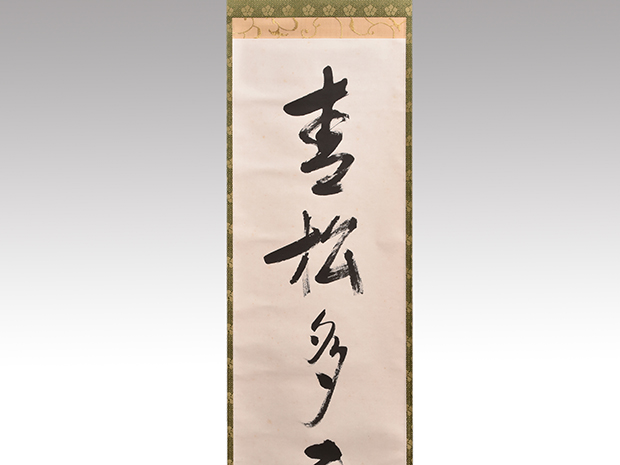 青松多